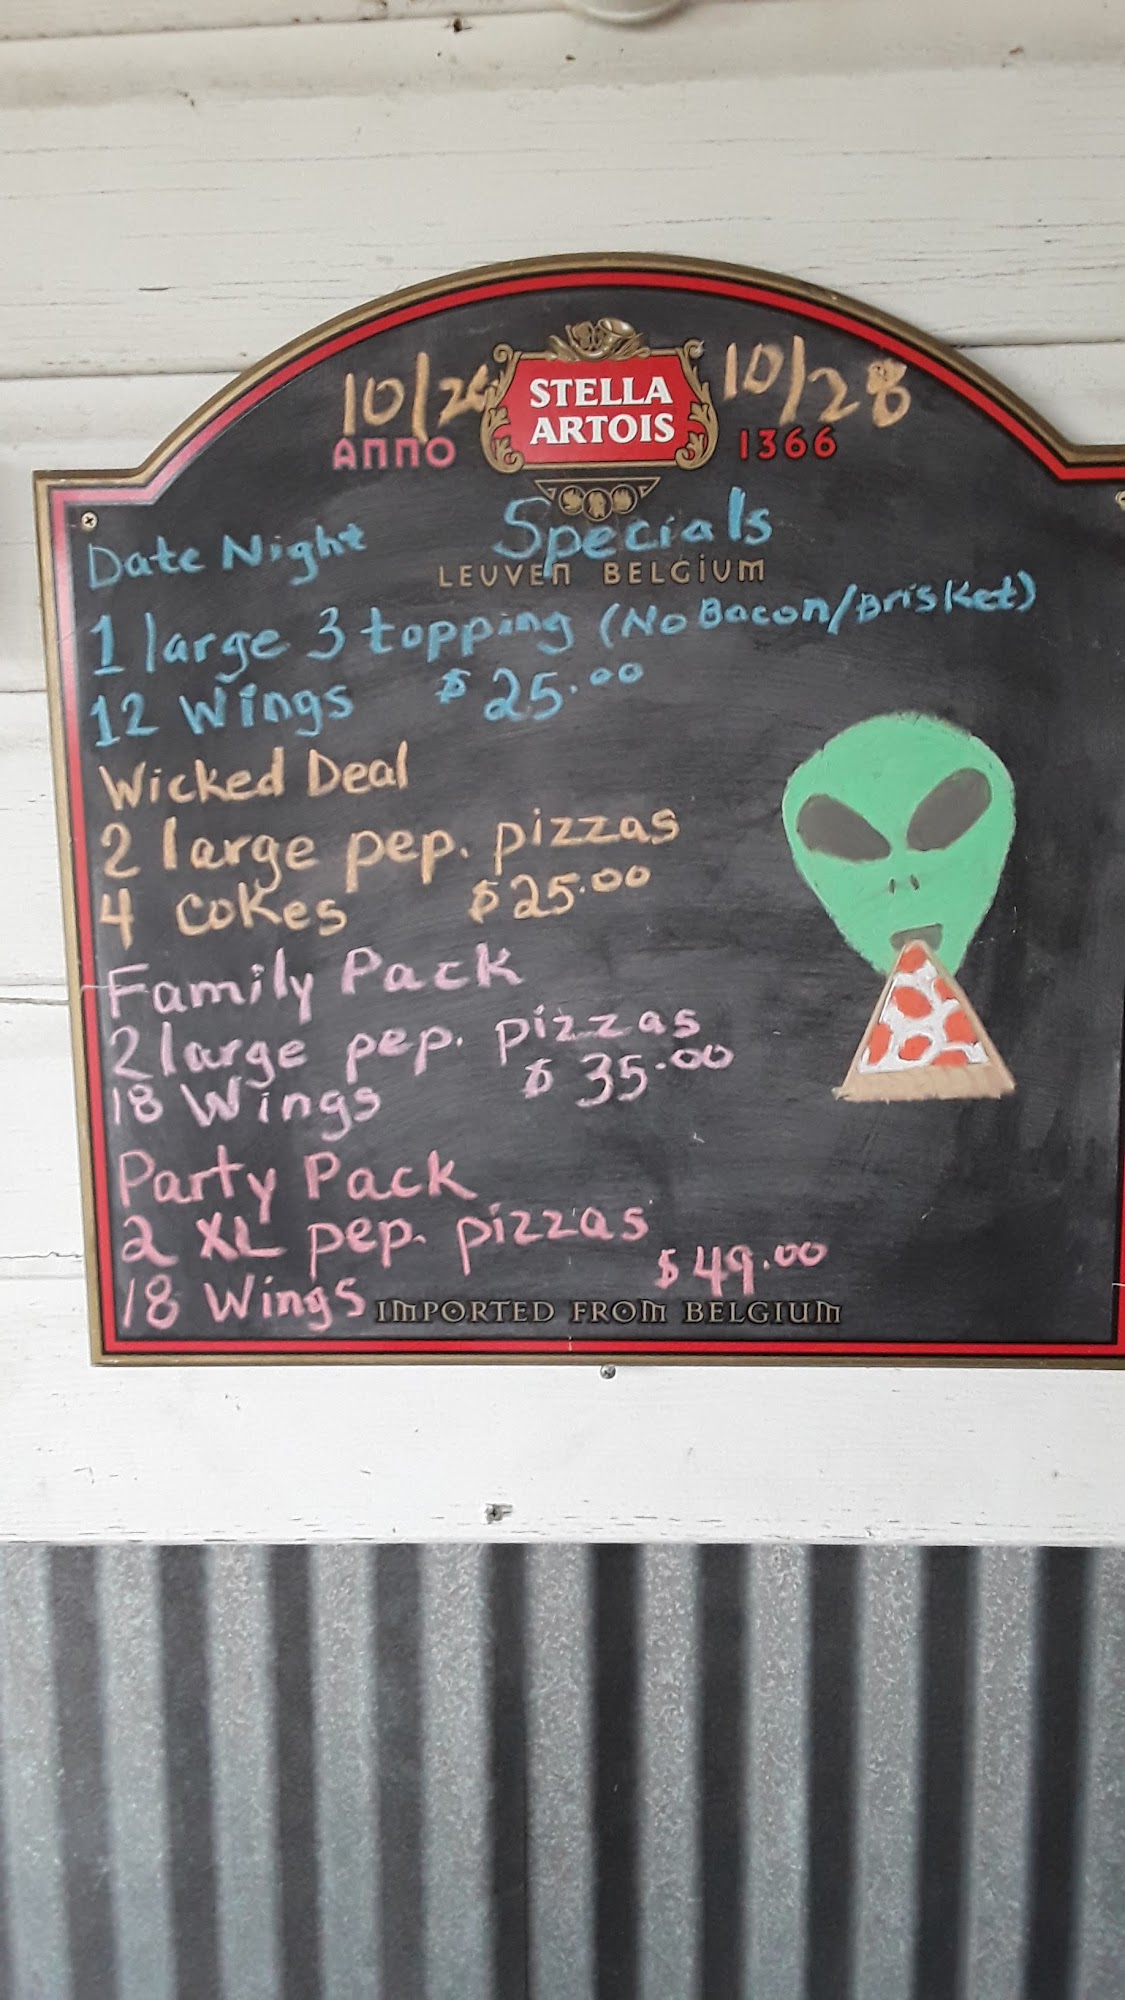 10/26 STELLA ARTOIS 10/28
ANNO 1366
Date Night Specials
LEUVEN BELGIUM
1 large 3 topping (No Bacon/Brisket)
12 Wings $25.00
Wicked Deal
2 large pep. pizzas
4 cokes $25.00
Family Pack
2 large pep. pizzas
18 Wings $35.00
Party Pack
2 XL pep. pizzas
18 Wings $49.00
IMPORTED FROM BELGIUM